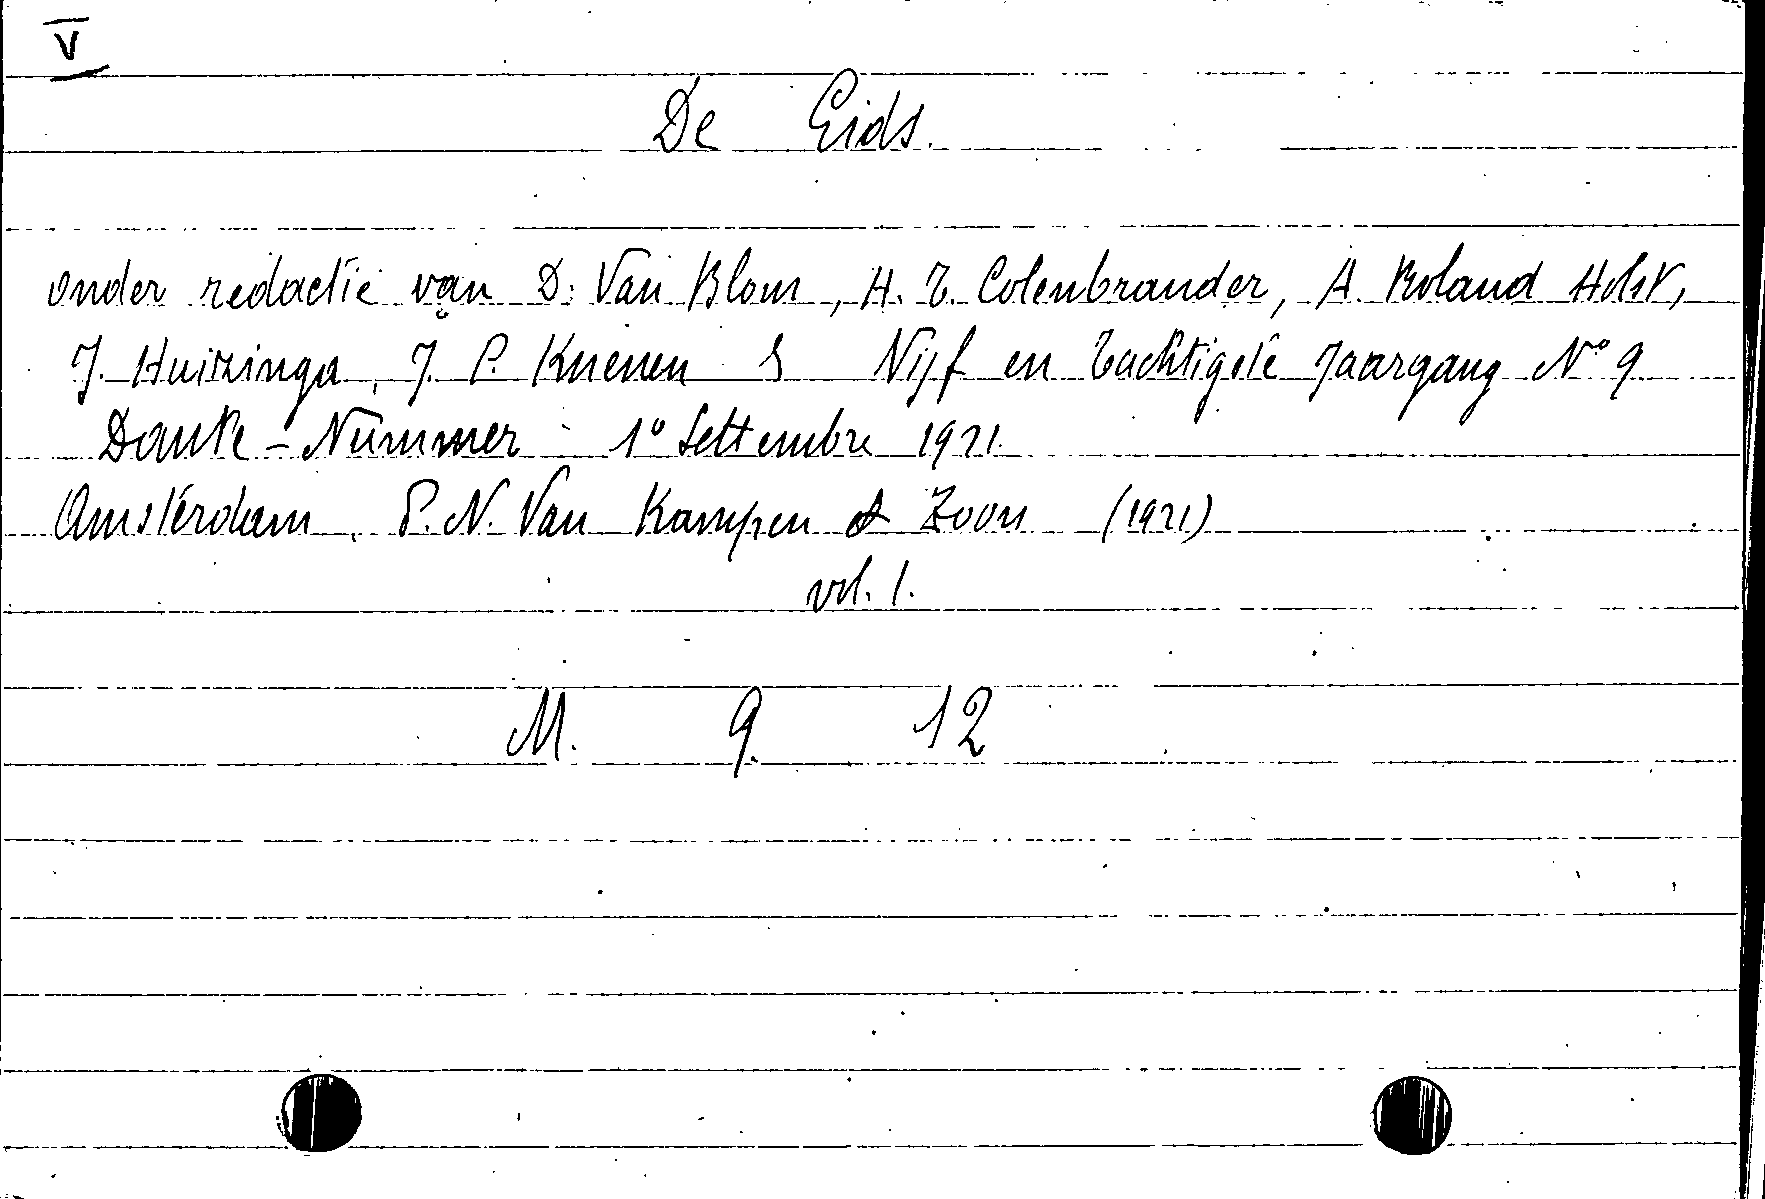 V
De Gids.
onder redactie van D. Van Blom, H. T. Colenbrander, A. Roland Holst,
J. Huizinga, J. P. Kuenen Vijf en tachtigste Jaargang N° 9
Dante - Nummer - 1° Settembre 1921.
Amsterdam, P. N. Van Kampen & Zoon (1921)
vol. 1.
M. 9. 12